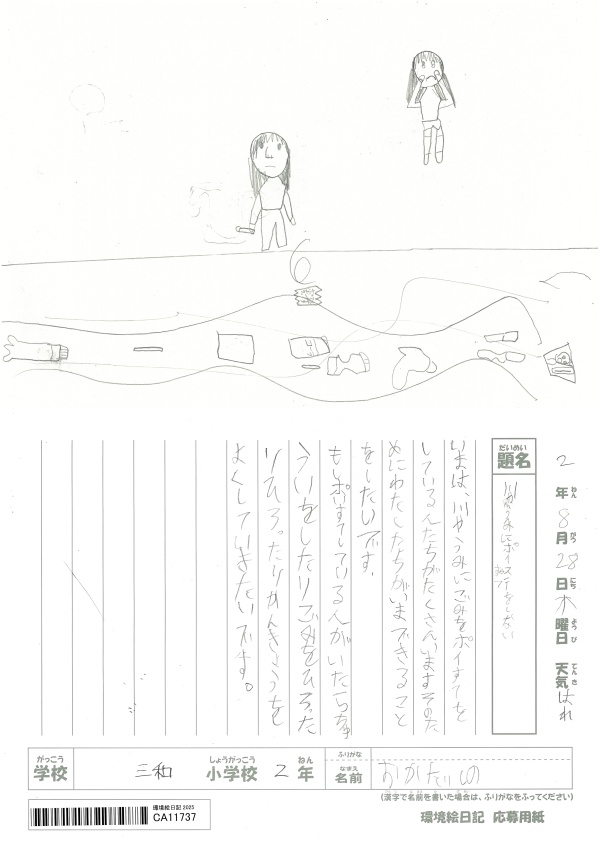 2年8月28日木曜日 天気はれ
ねん
がつ
にち
ようび
てんき
だいめい
題名
川やうみにポイステをしない
いまは、川やうみにごみをポイすてを
している人たちがたくさんいますそのた
めにわたしたちがいまできること
をしたいです。
もしポイすてしている人がいたらちゅ
ういをしたりごみをひろった
りひろったりかんきょうを
よくしていきたいです。
がっこう
学校
三和
しょうがっこう
小学校
2
ねん
年
ふりがな
なまえ
名前
(漢字で名前を書いた場合は、ふりがなをふってください)
環境絵日記 2025
CA11737
環境絵日記 応募用紙